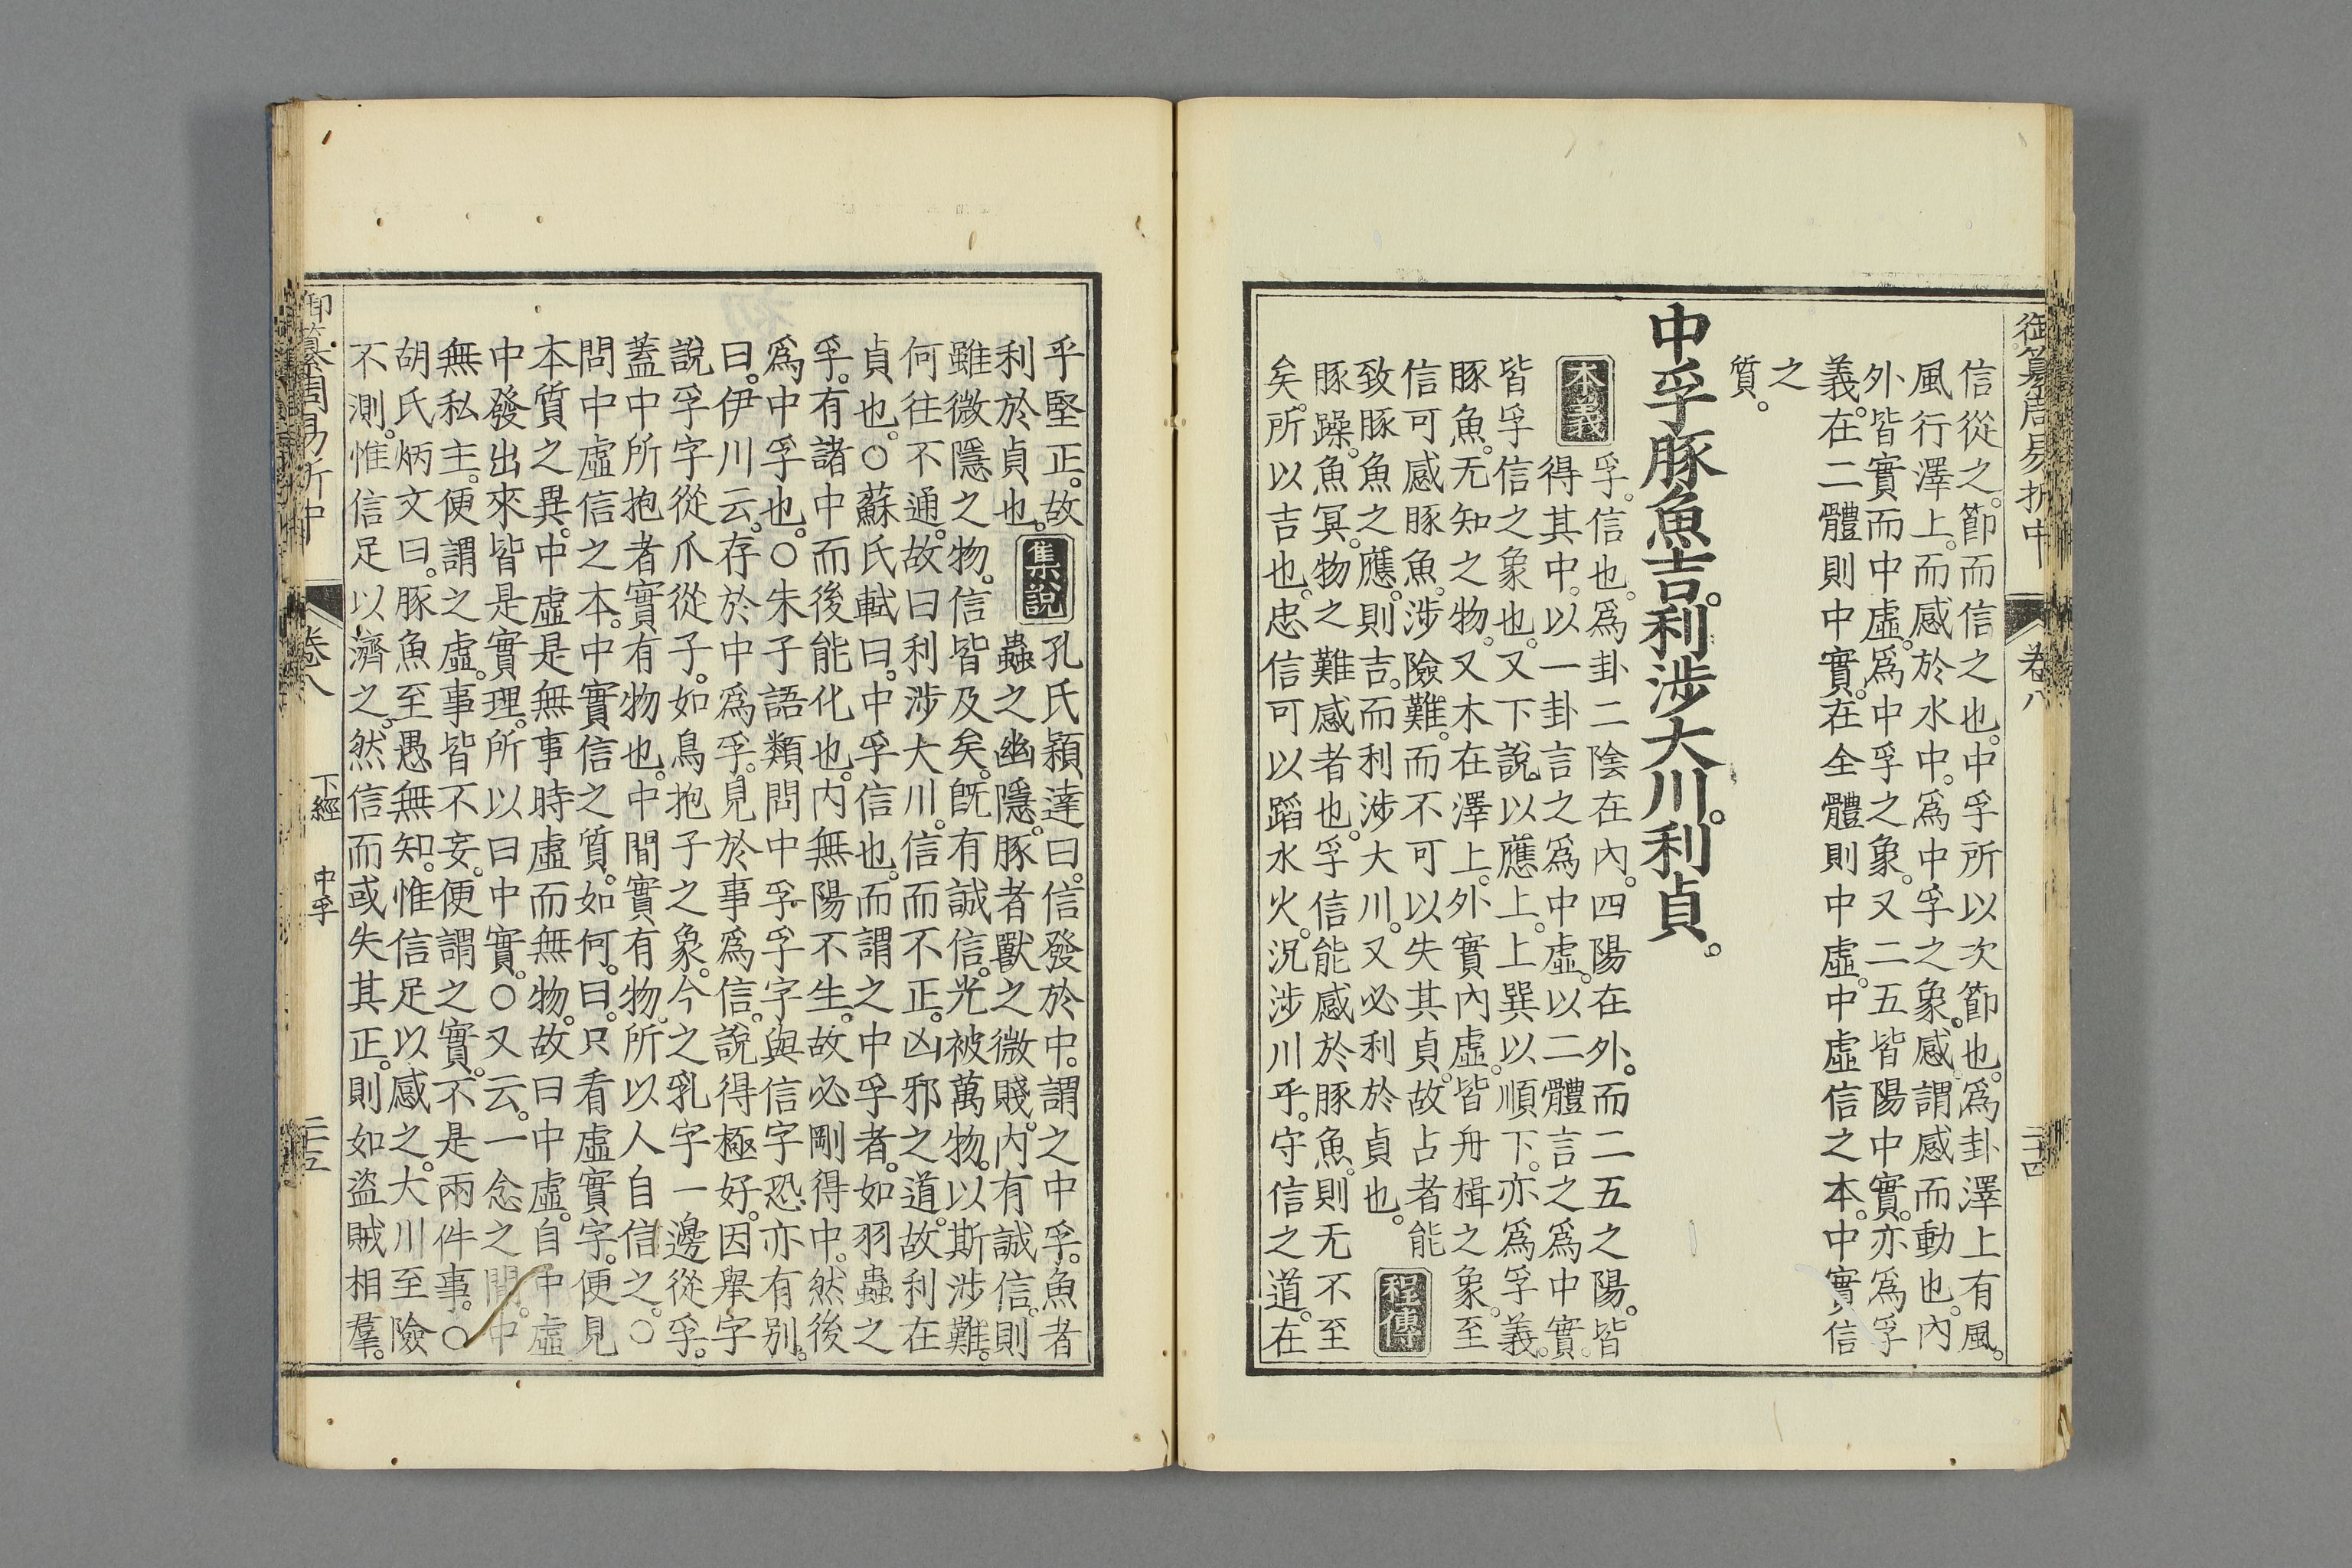 御纂周易折中 卷八 二十四
信從之。節而信之也。中孚所以次節也。爲卦澤上有風。
風行澤上。而感於水中。爲中孚之象。感謂感而動也。內
外皆實而中虛。爲中孚之象。又二五皆陽中實。亦爲孚
義。在二體則中實。在全體則中虛。中虛信之本。中實信
之
質。
中孚豚魚吉。利涉大川。利貞。
本義
孚。信也。爲卦二陰在內。四陽在外。而二五之陽。皆
得其中。以一卦言之爲中虛。以二體言之爲中實。
皆孚信之象也。又下說以應上。上巽以順下。亦爲孚義。
豚魚。无知之物。又木在澤上。外實內虛。皆舟楫之象。至
信可感豚魚。涉險難。而不可以失其貞。故占者能
致豚魚之應。則吉。而利涉大川。又必利於貞也。
程傳
豚躁。魚冥。物之難感者也。孚信能感於豚魚。則无不至
矣。所以吉也。忠信可以蹈水火。況涉川乎。守信之道。在
乎堅正。故
利於貞也。
集說
孔氏穎達曰。信發於中。謂之中孚。魚者
蟲之幽隱。豚者獸之微賤。內有誠信。則
雖微隱之物。信皆及矣。旣有誠信。光被萬物。以斯涉難。
何往不通。故曰利涉大川。信而不正。凶邪之道。故利在
貞也。○蘇氏軾曰。中孚信也。而謂之中孚者。如羽蟲之
孚。有諸中而後能化也。內無陽不生。故必剛得中。然後
爲中孚也。○朱子語類問中孚孚字與信字恐亦有別。
曰。伊川云。存於中爲孚。見於事爲信。說得極好。因舉字
說孚字從爪從子。如鳥抱子之象。今之乳字一邊從孚。
蓋中所抱者實有物也。中間實有物。所以人自信之。○
問中虛信之本。中實信之質。如何。曰。只看虛實字。便見
本質之異。中虛是無事時虛而無物。故曰中虛。自中虛
中發出來皆是實理。所以曰中實。○又云。一念之間。中
無私主。便謂之虛。事皆不妄。便謂之實。不是兩件事。○
胡氏炳文曰。豚魚至愚無知。惟信足以感之。大川至險
不測。惟信足以濟之。然信而或失其正。則如盜賊相羣。
御纂周易折中 卷八 下經 中孚 二十五